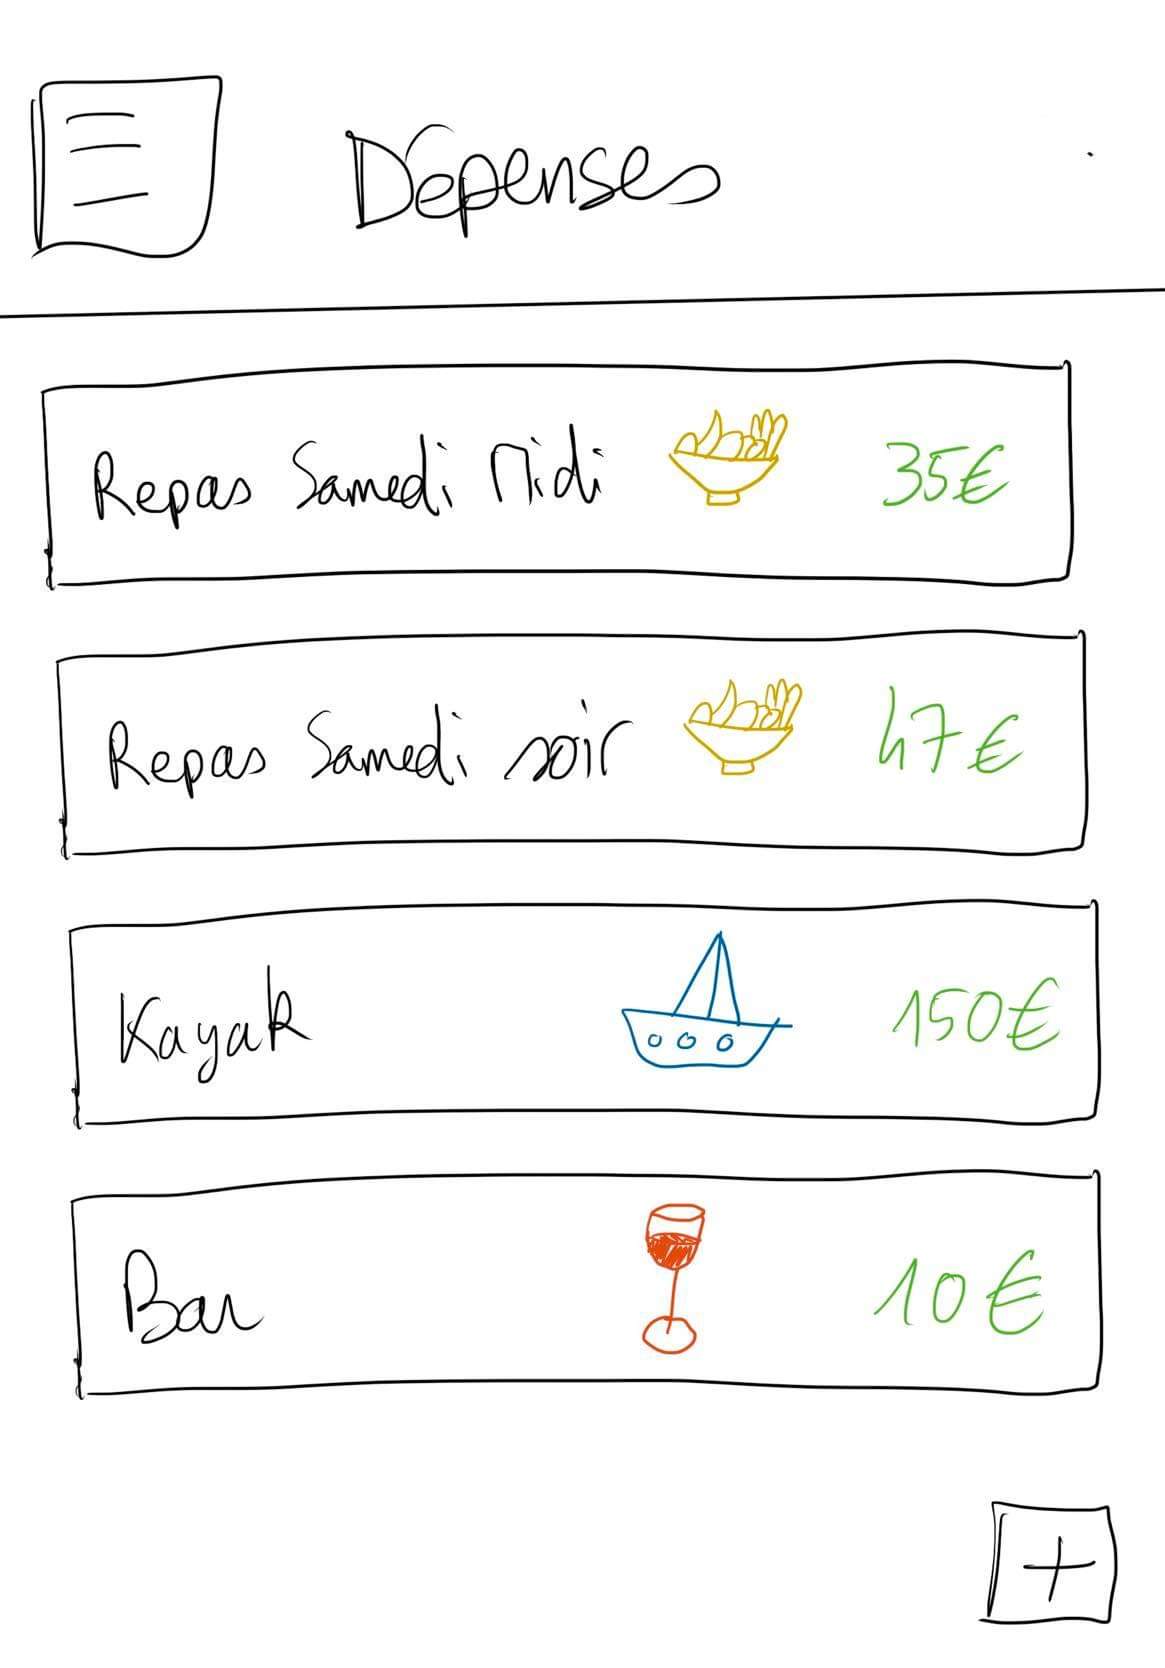 Dépenses
Repas Samedi Midi 35€
Repas Samedi soir 47€
Kayak 150€
Bar 10€
+